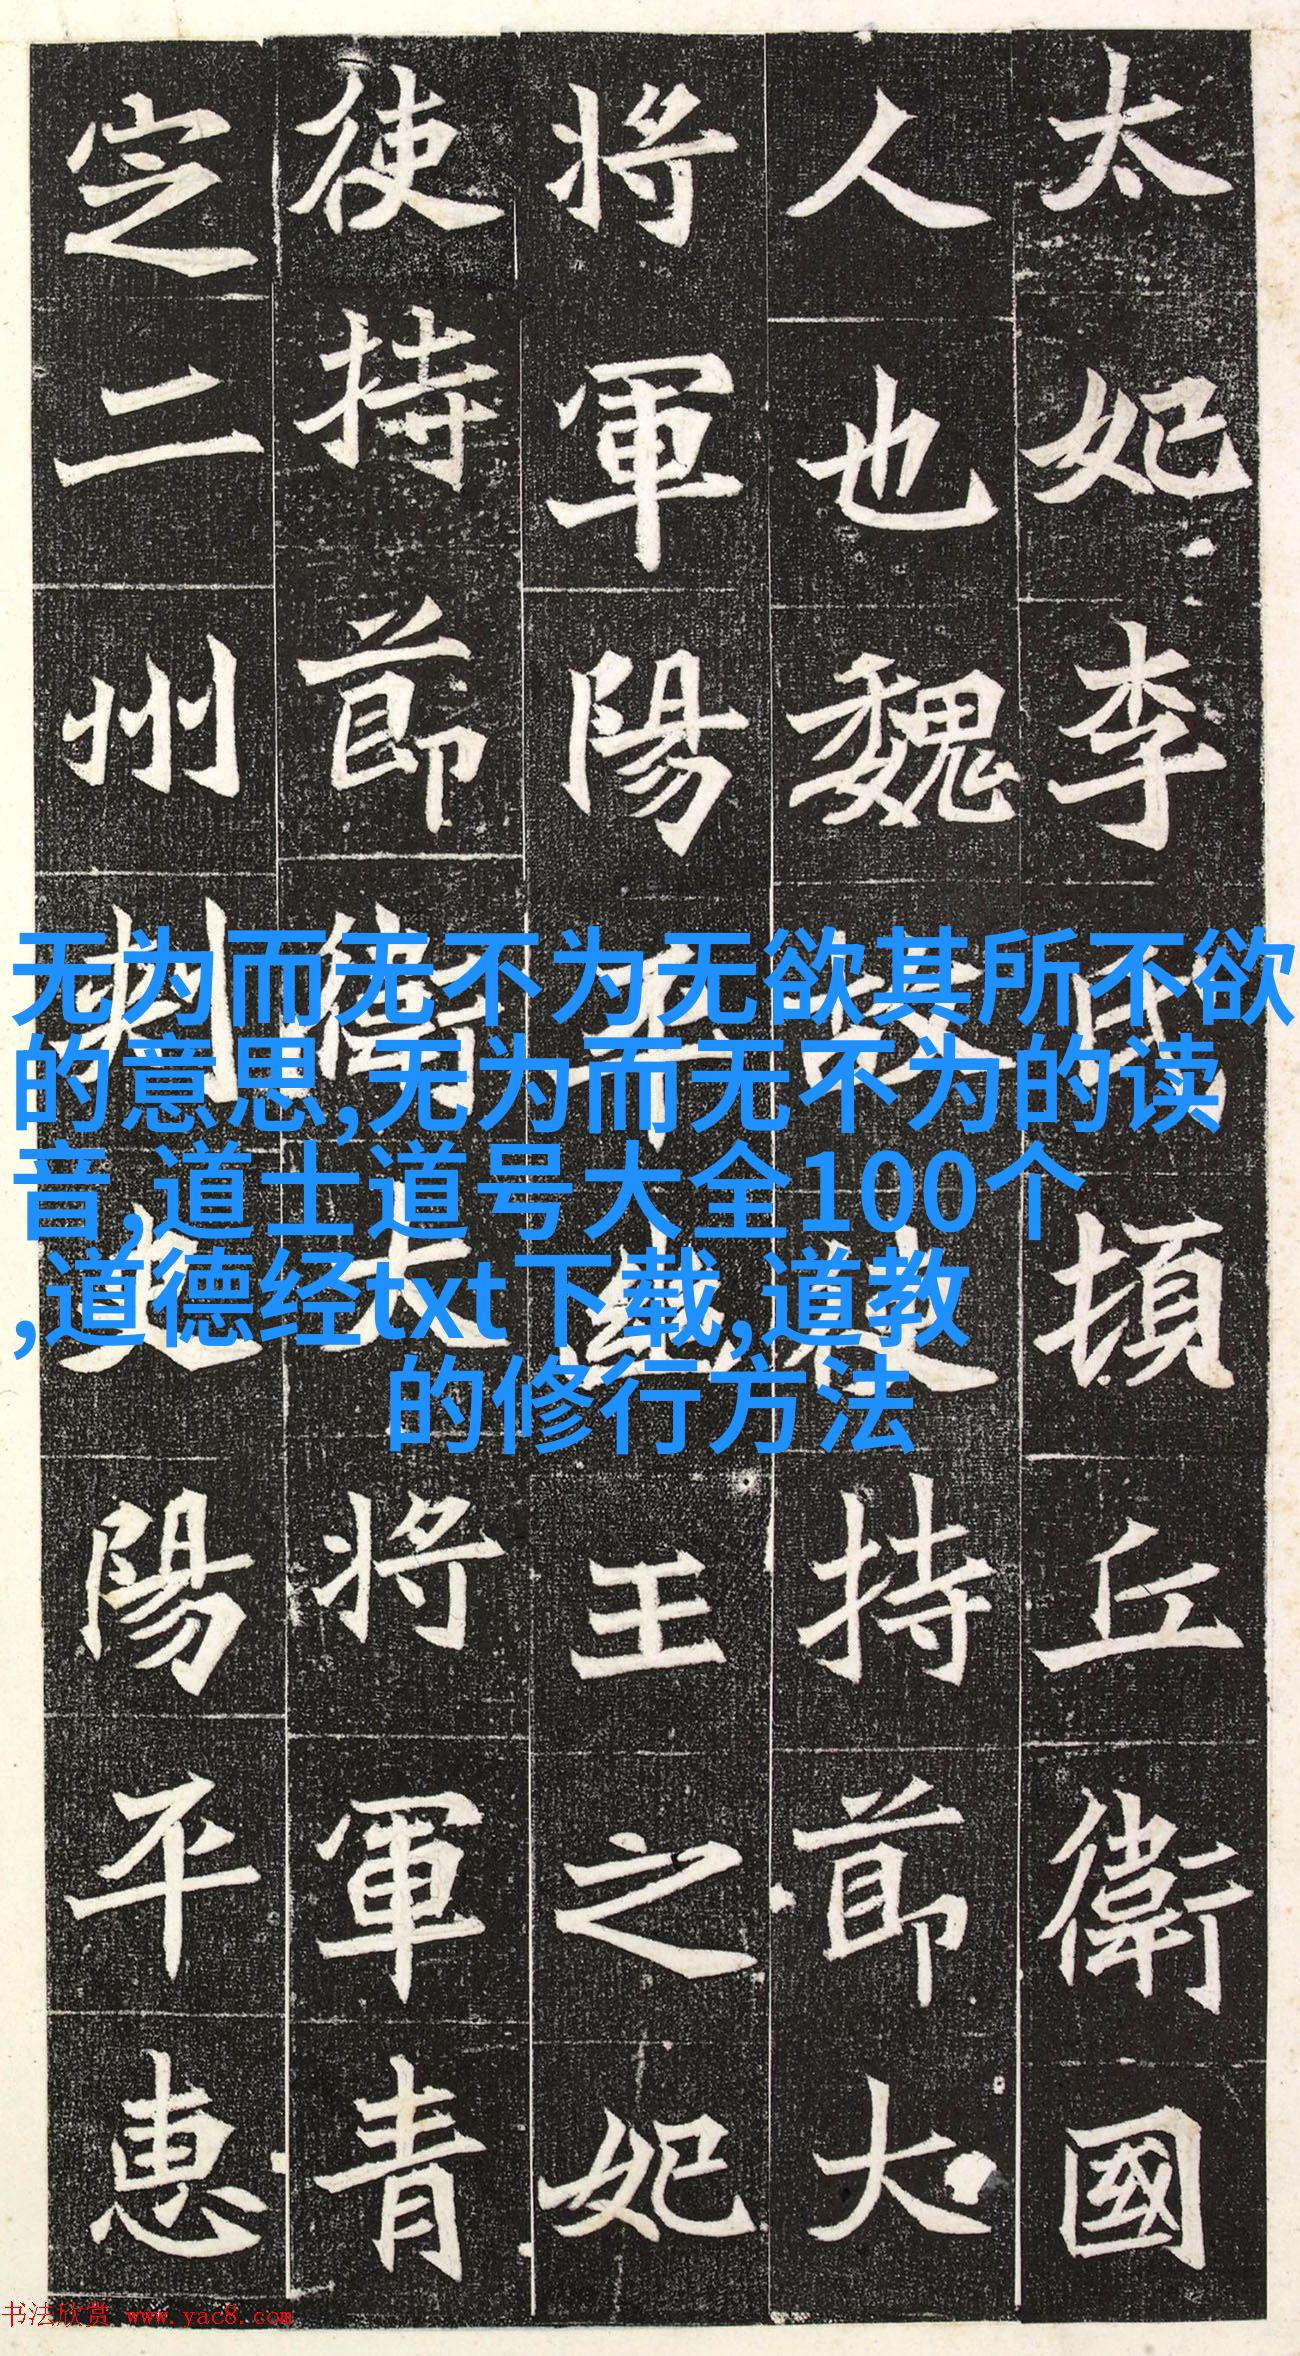 太妃李氏頓丘衛國
人也魏故使持節大
将軍陽平幽王之妃
使持節衛大将軍青
定二州刺史陽平惠
无为而无不为无欲其所不欲
的意思,无为而无不为的读
音,道士道号大全100个
,道德经txt下载,道教
的修行方法
书法欣赏 www.yac8.com